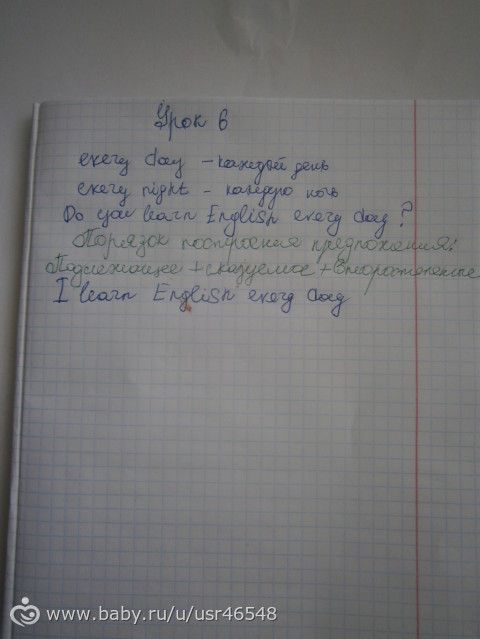 Урок 6
every day - каждый день
every night - каждую ночь
Do you learn English every day?
Порядок построения предложения:
Подлежащее + сказуемое + второстепенные
I learn English every day
www.baby.ru/u/usr46548